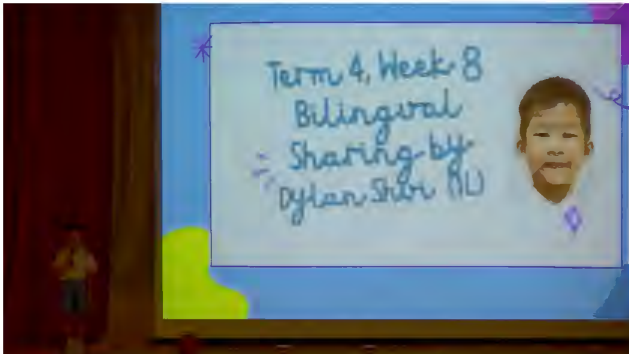 Term 4, Week 8
Bilingual
Sharing by
Dylan